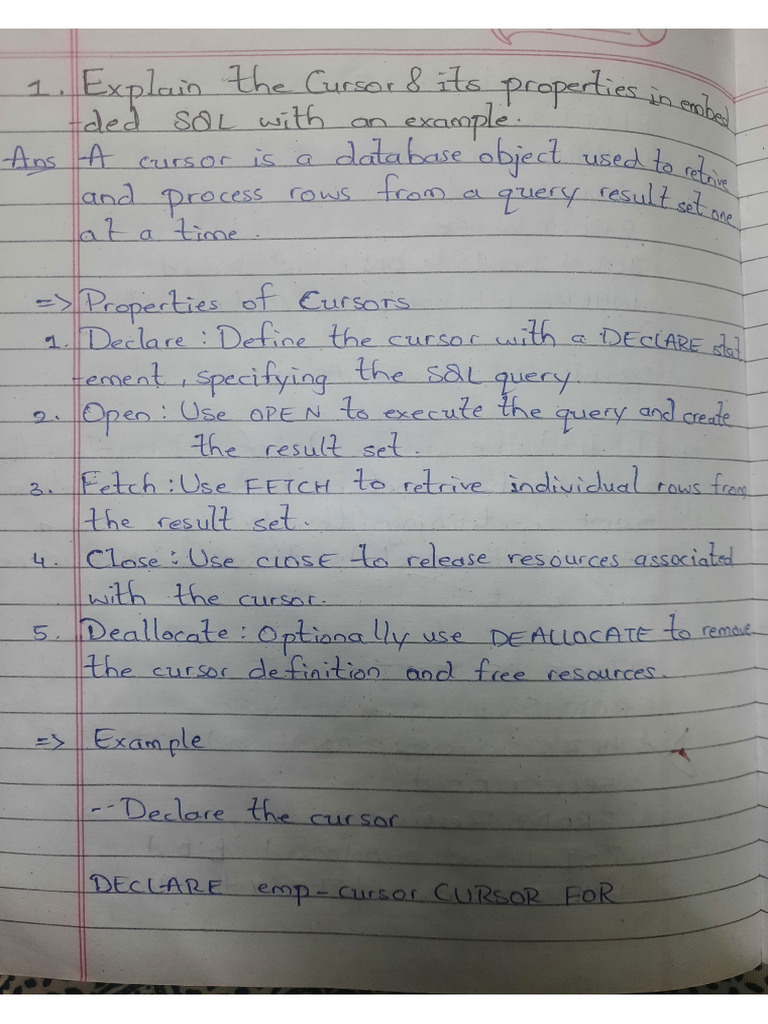 1. Explain the Cursor & its properties in embed
-ded SQL with an example.
Ans A cursor is a database object used to retrive
and process rows from a query result set one
at a time.
=> Properties of Cursors
1. Declare : Define the cursor with a DECLARE stat
-ement, specifying the SQL query.
2. Open : Use OPEN to execute the query and create
the result set.
3. Fetch : Use FETCH to retrive individual rows from
the result set.
4. Close : Use CLOSE to release resources associated
with the cursor.
5. Deallocate : Optionally use DEALLOCATE to remove
the cursor definition and free resources.
=> Example
-- Declare the cursor
DECLARE emp-cursor CURSOR FOR